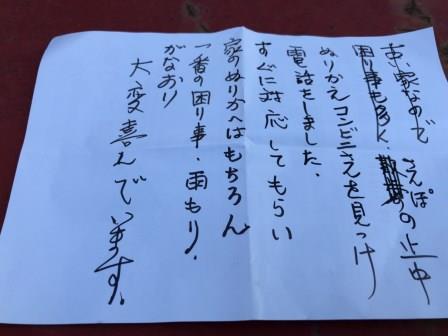 古い家なので
困り事も多く、さんぽの止中
ぬりかえコンビニさんを見つけ
電話をしました、
すぐに対応してもらい
家のぬりかへはもちろん
一番の困り事、雨もり、
がなおり
大変喜んでいます。